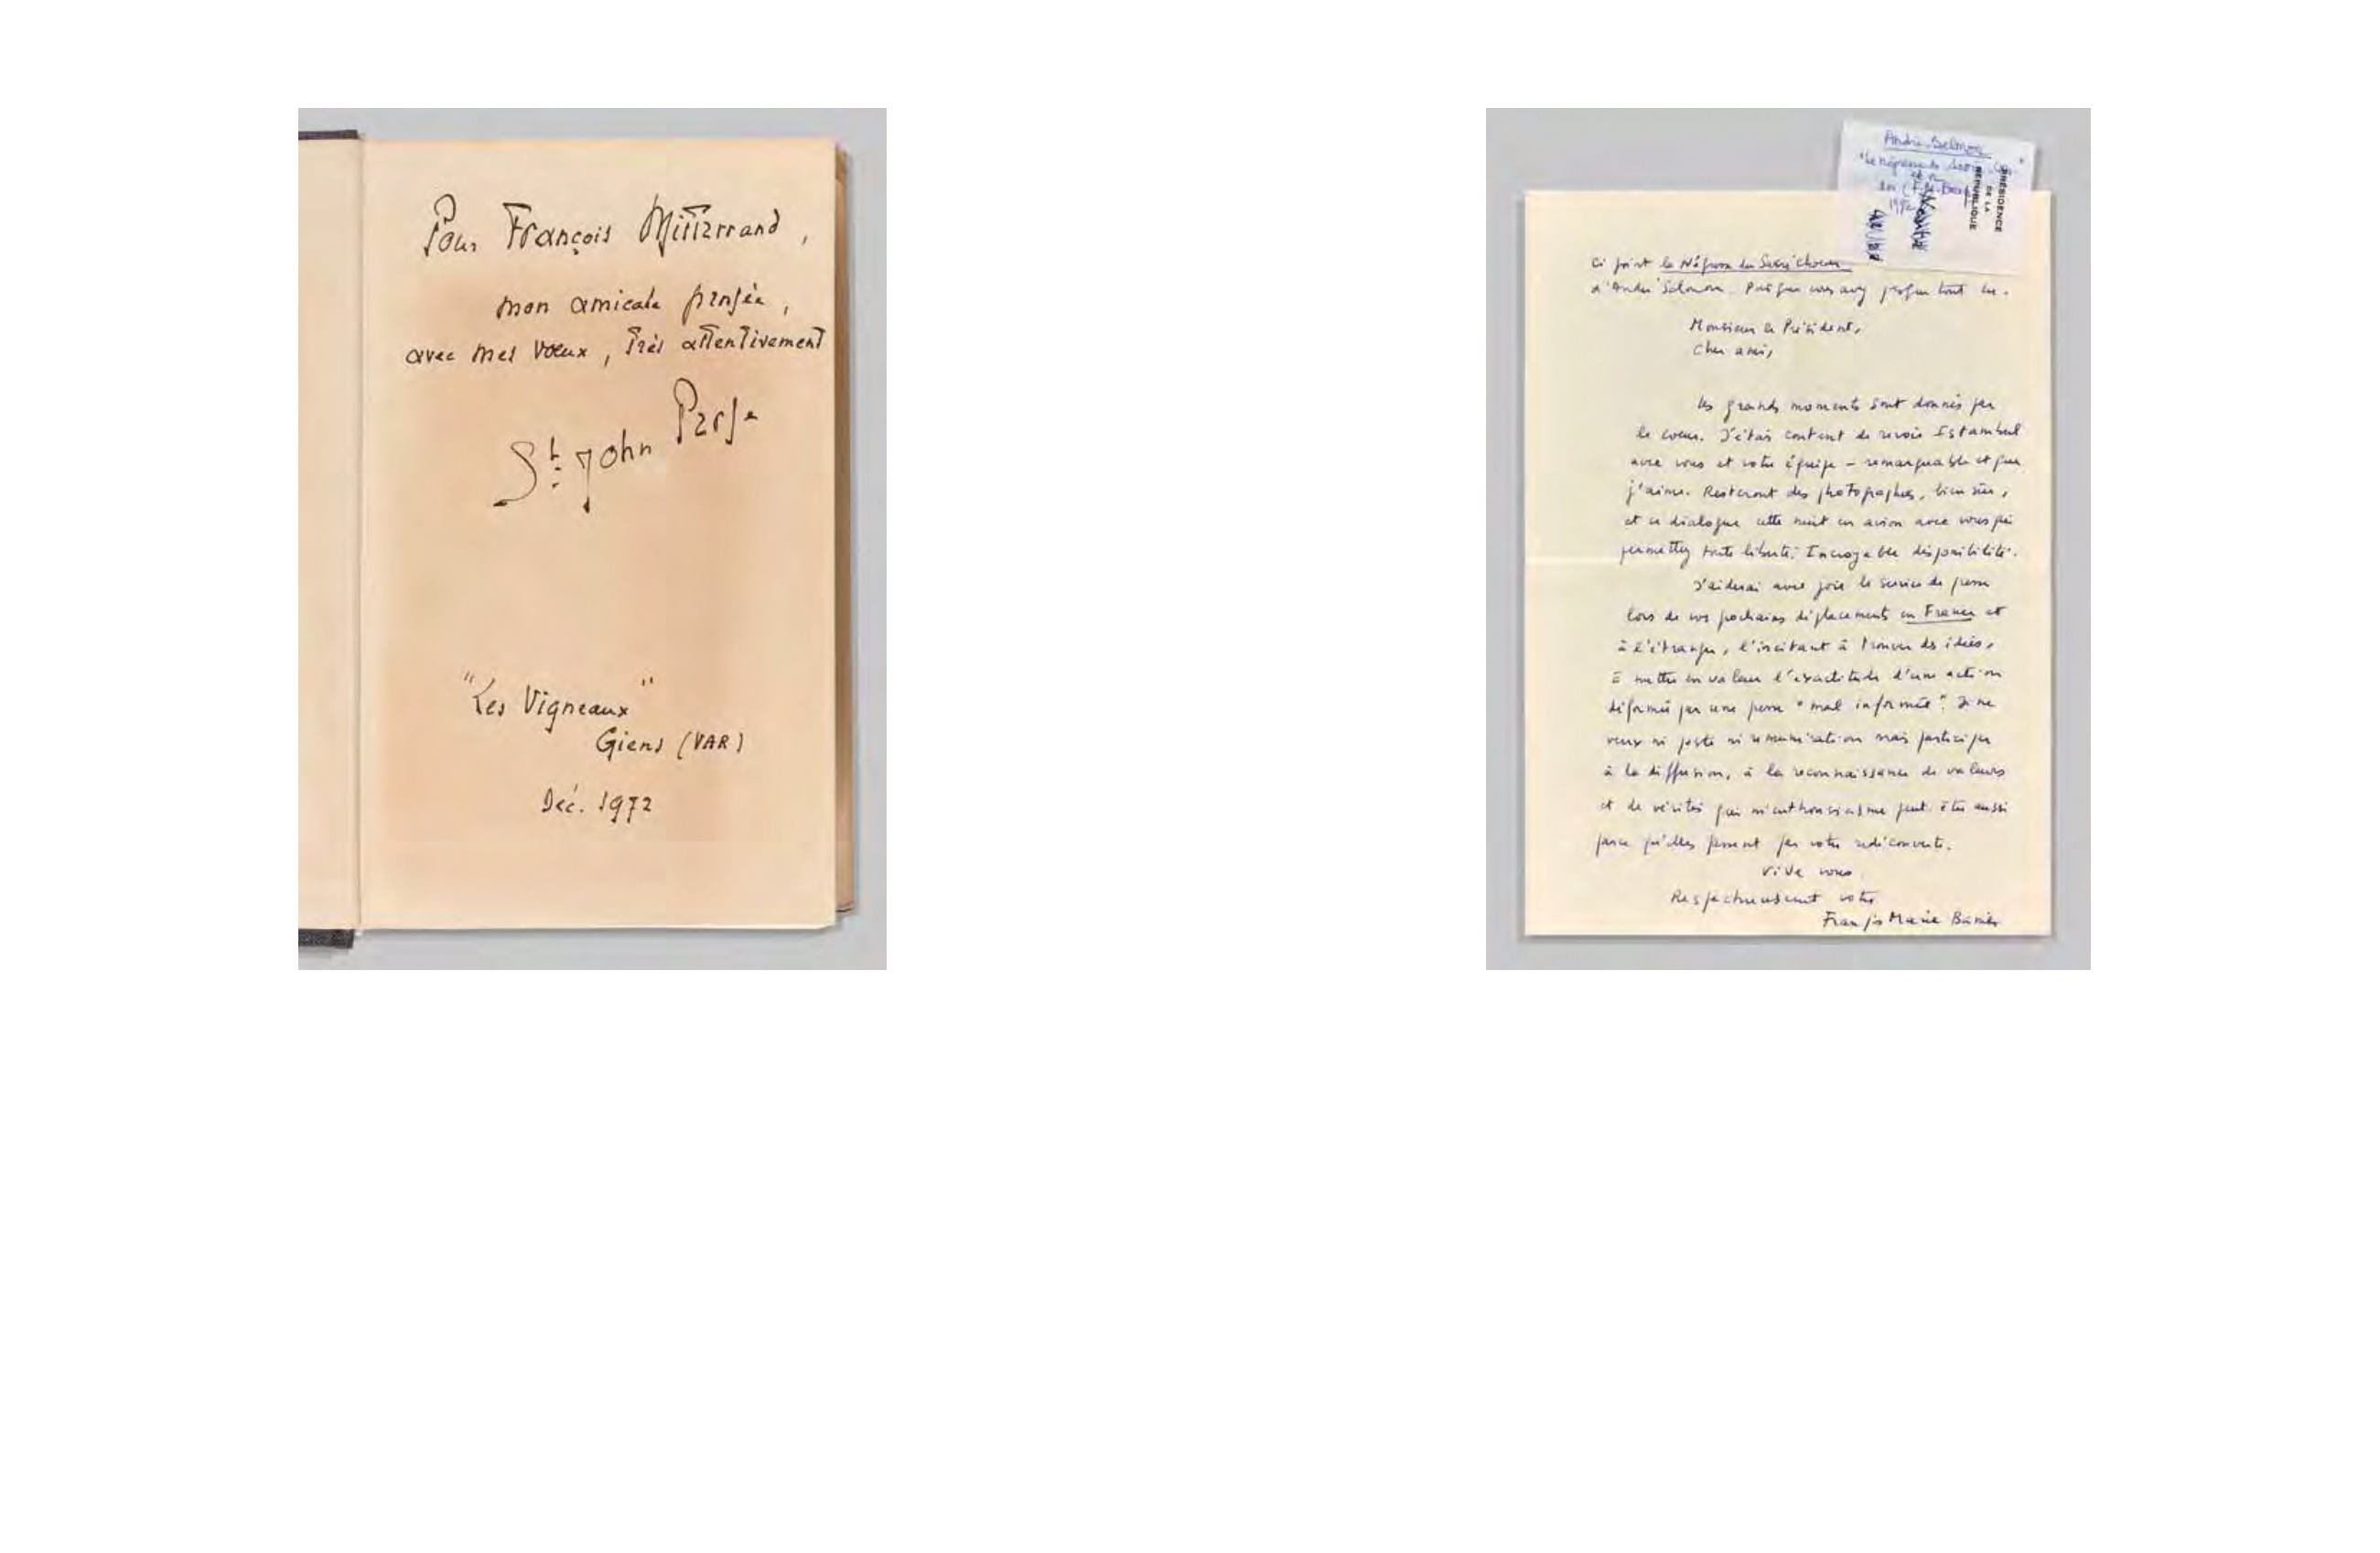 Pour François Mitterrand,
mon amicale pensée,
avec mes vœux, très attentivement
St. John Perse
"Les Vigneaux"
Giens (VAR)
Déc. 1972
André Salmon
"Le négresse du Sacré
1992
PRÉSIDENCE
DE LA
RÉPUBLIQUE
Ci joint la Négresse du Sacré Choeur
d'André Salmon. Puisque vous avez presque tout lu.
Monsieur le Président,
Cher ami,
Les grands moments sont donnés par
le coeur. J'étais content de revoir Istambul
avec vous et votre équipe – remarquable et que
j'aime. Resteront des photographies, bien sûr,
et ce dialogue cette nuit en avion avec vous qui
permettez toute liberté. Incroyable disponibilité.
J'aiderai avec joie le service de presse
lors de vos prochains déplacements en France et
à l'étranger, l'incitant à trouver des idées,
à mettre en valeur l'exactitude d'une action
déformée par une presse "mal informée". Je ne
veux ni poste ni rémunération mais participer
à la diffusion, à la reconnaissance de valeurs
et de vérités qui m'enthousiasme peut-être aussi
parce qu'elles passent par votre redécouverte.
Vive vous
Respectueusement votre
François Marie Banier